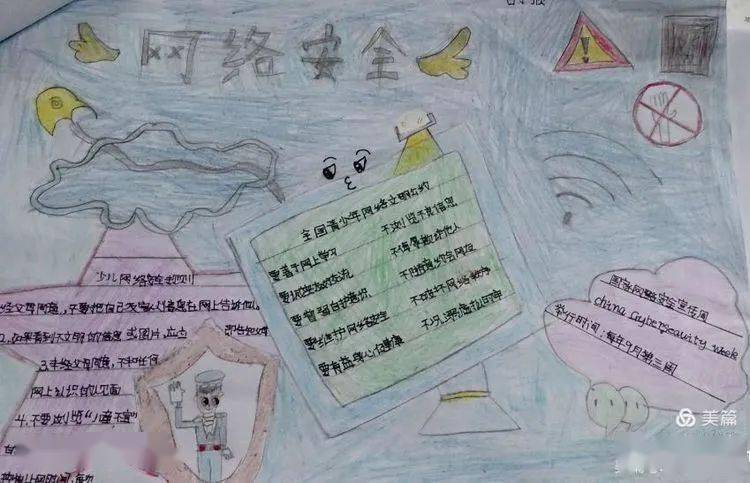 网络安全
全国青少年网络文明公约
要善于网上学习 不浏览不良信息
要诚实友好交流 不侮辱欺诈他人
要增强自护意识 不随意约会网友
要维护网络安全 不破坏网络秩序
要有益身心健康 不沉溺虚拟时空
少儿网络安全规则
经父母同意，不要把自己及家人信息在网上告诉他人
2.如果看到不文明的信息或图片，应立 即告知父母
3.未经父母同意，不和任何
网上认识的人见面
4.不要浏览“儿童不宜”
国家网络安全宣传周
china Cybersecurity week
举行时间：每年9月第三周
美篇